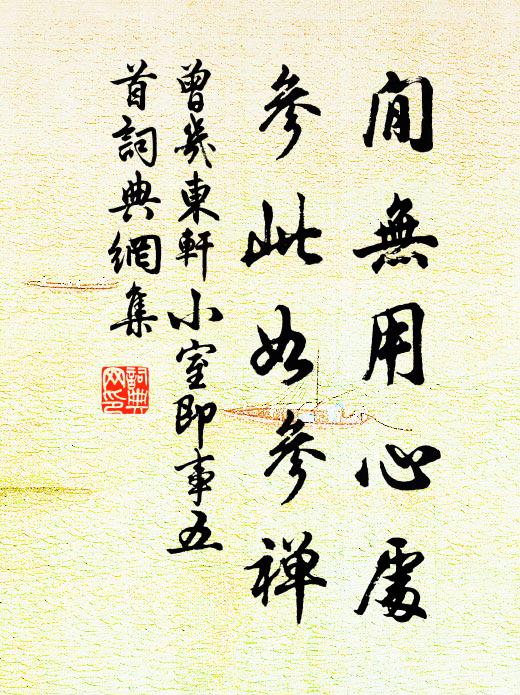 閒無用心處
參此如參禪
曾幾東軒小室即事五
首詞典網集
詞典
網印